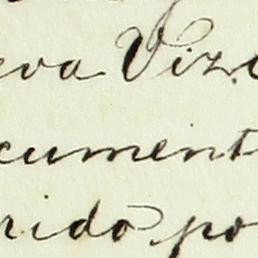 eva Vizc
cument
rido po